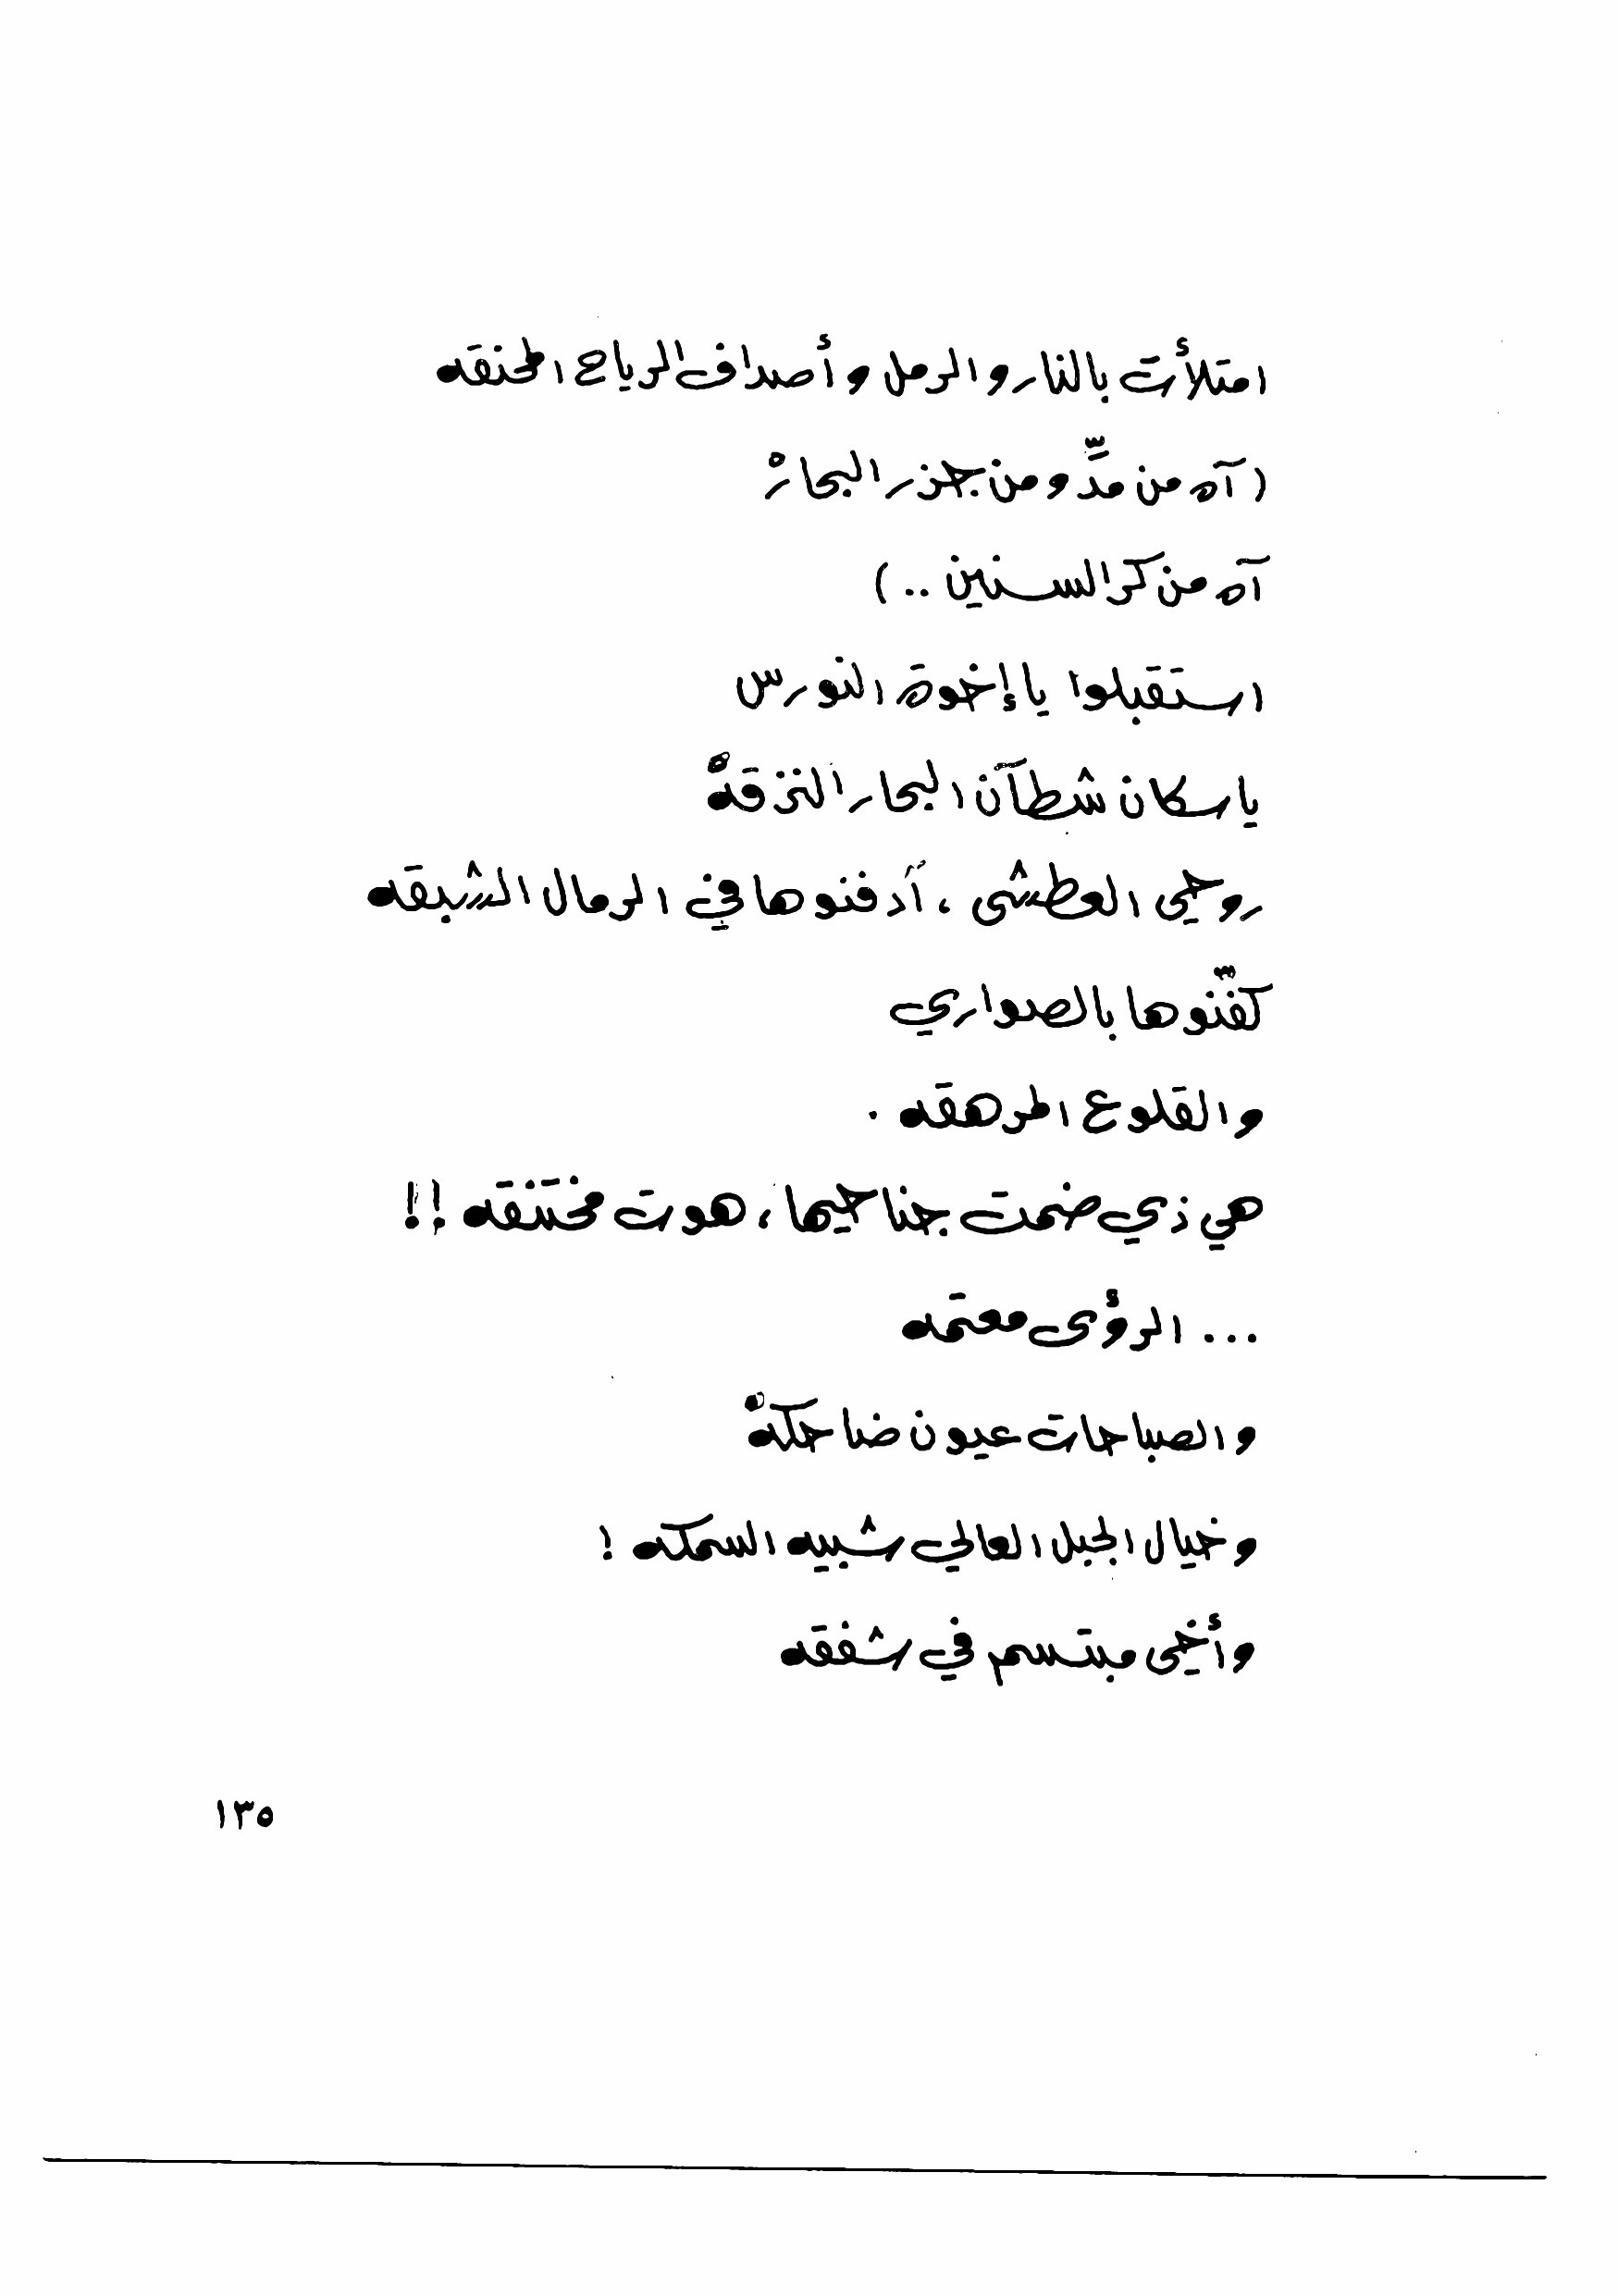 امتلأت بالنار والرمل وأصداف الرياح المحنقه
( آه من مدٍّ ومن جزر البحارْ
آه من كر السنين .. )
استقبلوا يا إخوة النورس
يا سكان شطآن البحار النزقهْ
روحي العطشى ، أدفنوها في الرمال الشبقه
كفّنوها بالصواري
والقلوع المرهقه .
هي ذي ضمت جناحيها ، هوت مختنقه !!
... الرؤى معتمه
والصباحات عيون ضاحكهْ
وخيال الجبل العالي شبيه السمكه !
وأخي مبتسم في شفقه
١٣٥